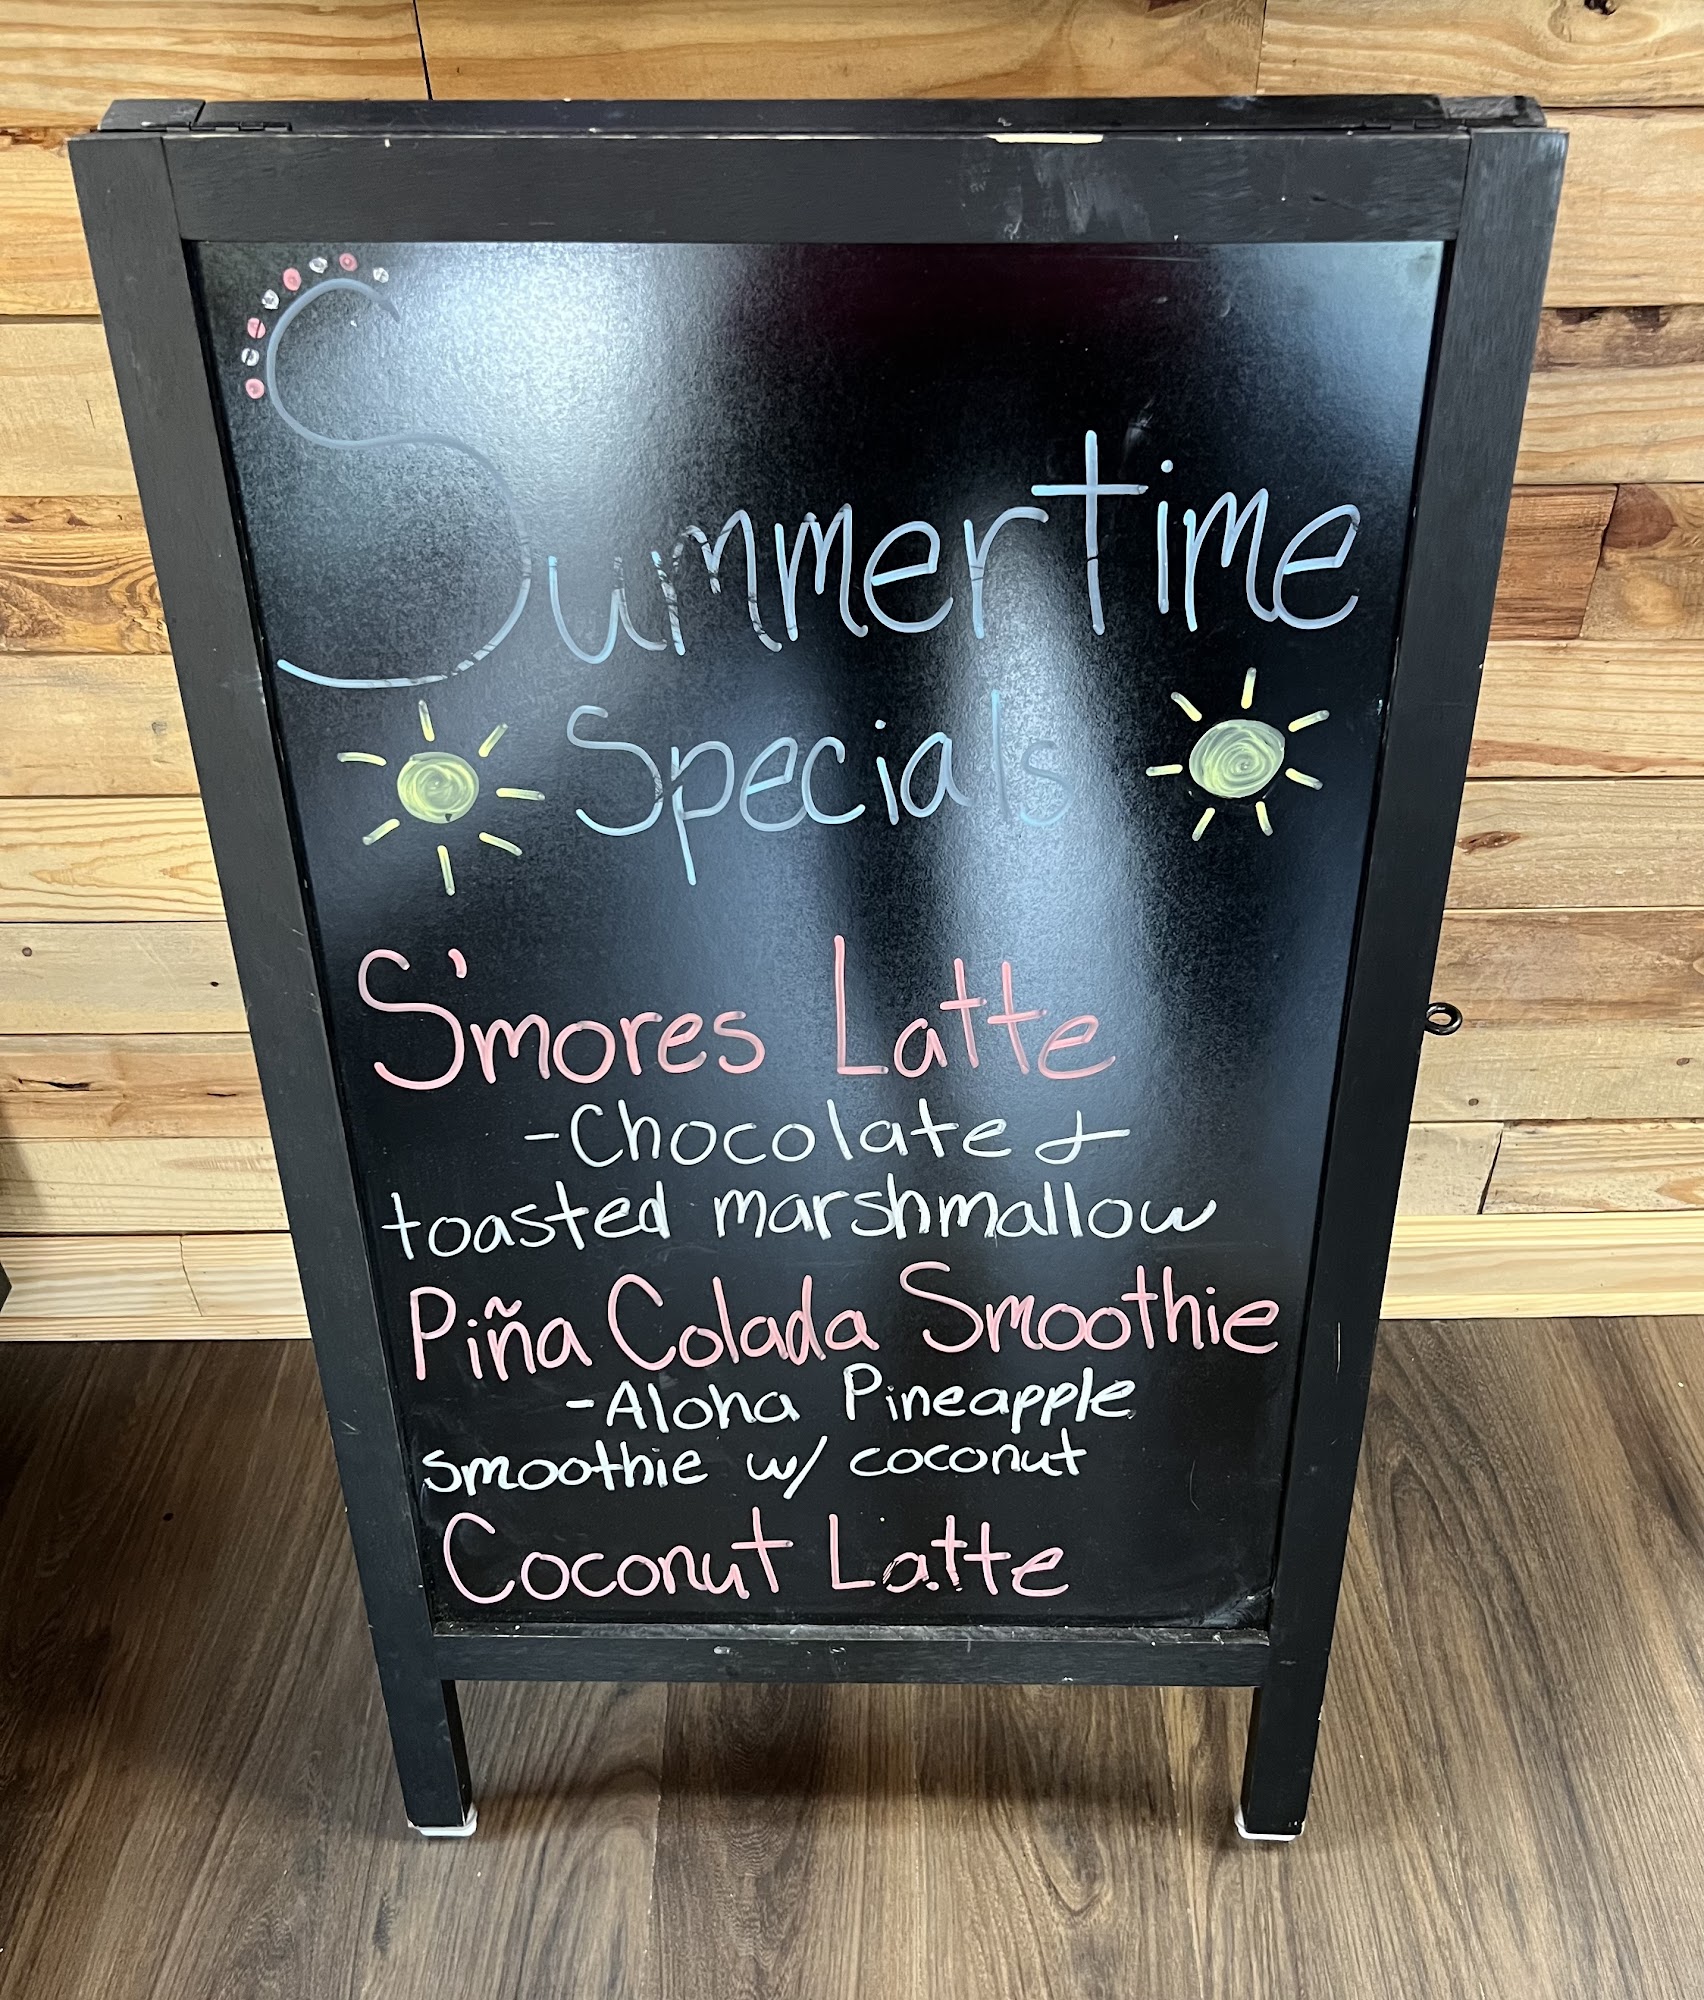 Summertime
Specials
S'mores Latte
-Chocolate &
toasted marshmallow
Piña Colada Smoothie
-Aloha Pineapple
smoothie w/ coconut
Coconut Latte